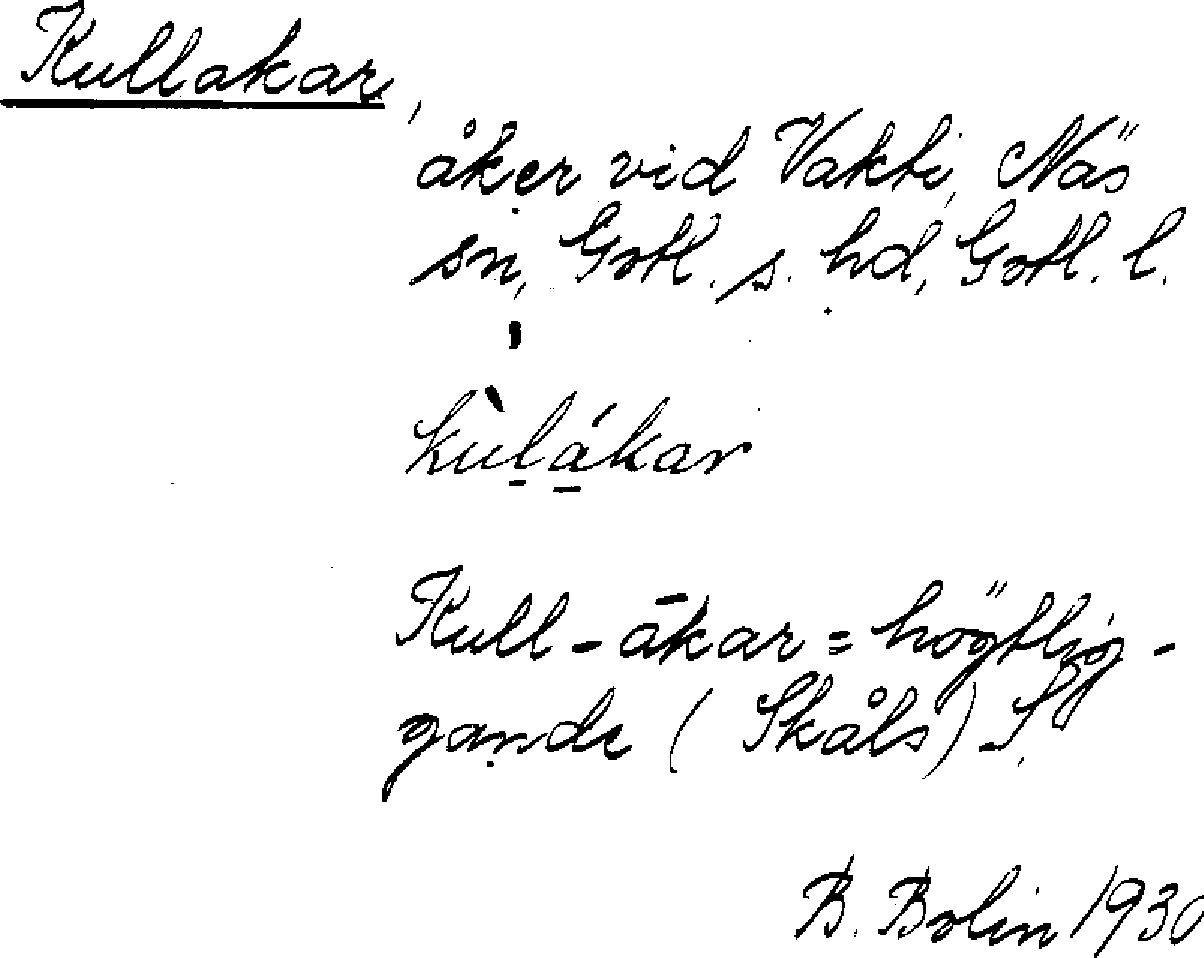 Kullakar,
åker vid Vakti, Näs
sn, Gotl. s. hd, Gotl. l.
kùl̠á̠kar
Kull-ākar = högtlig-
gande (Skåls)
B. Bolin 1930